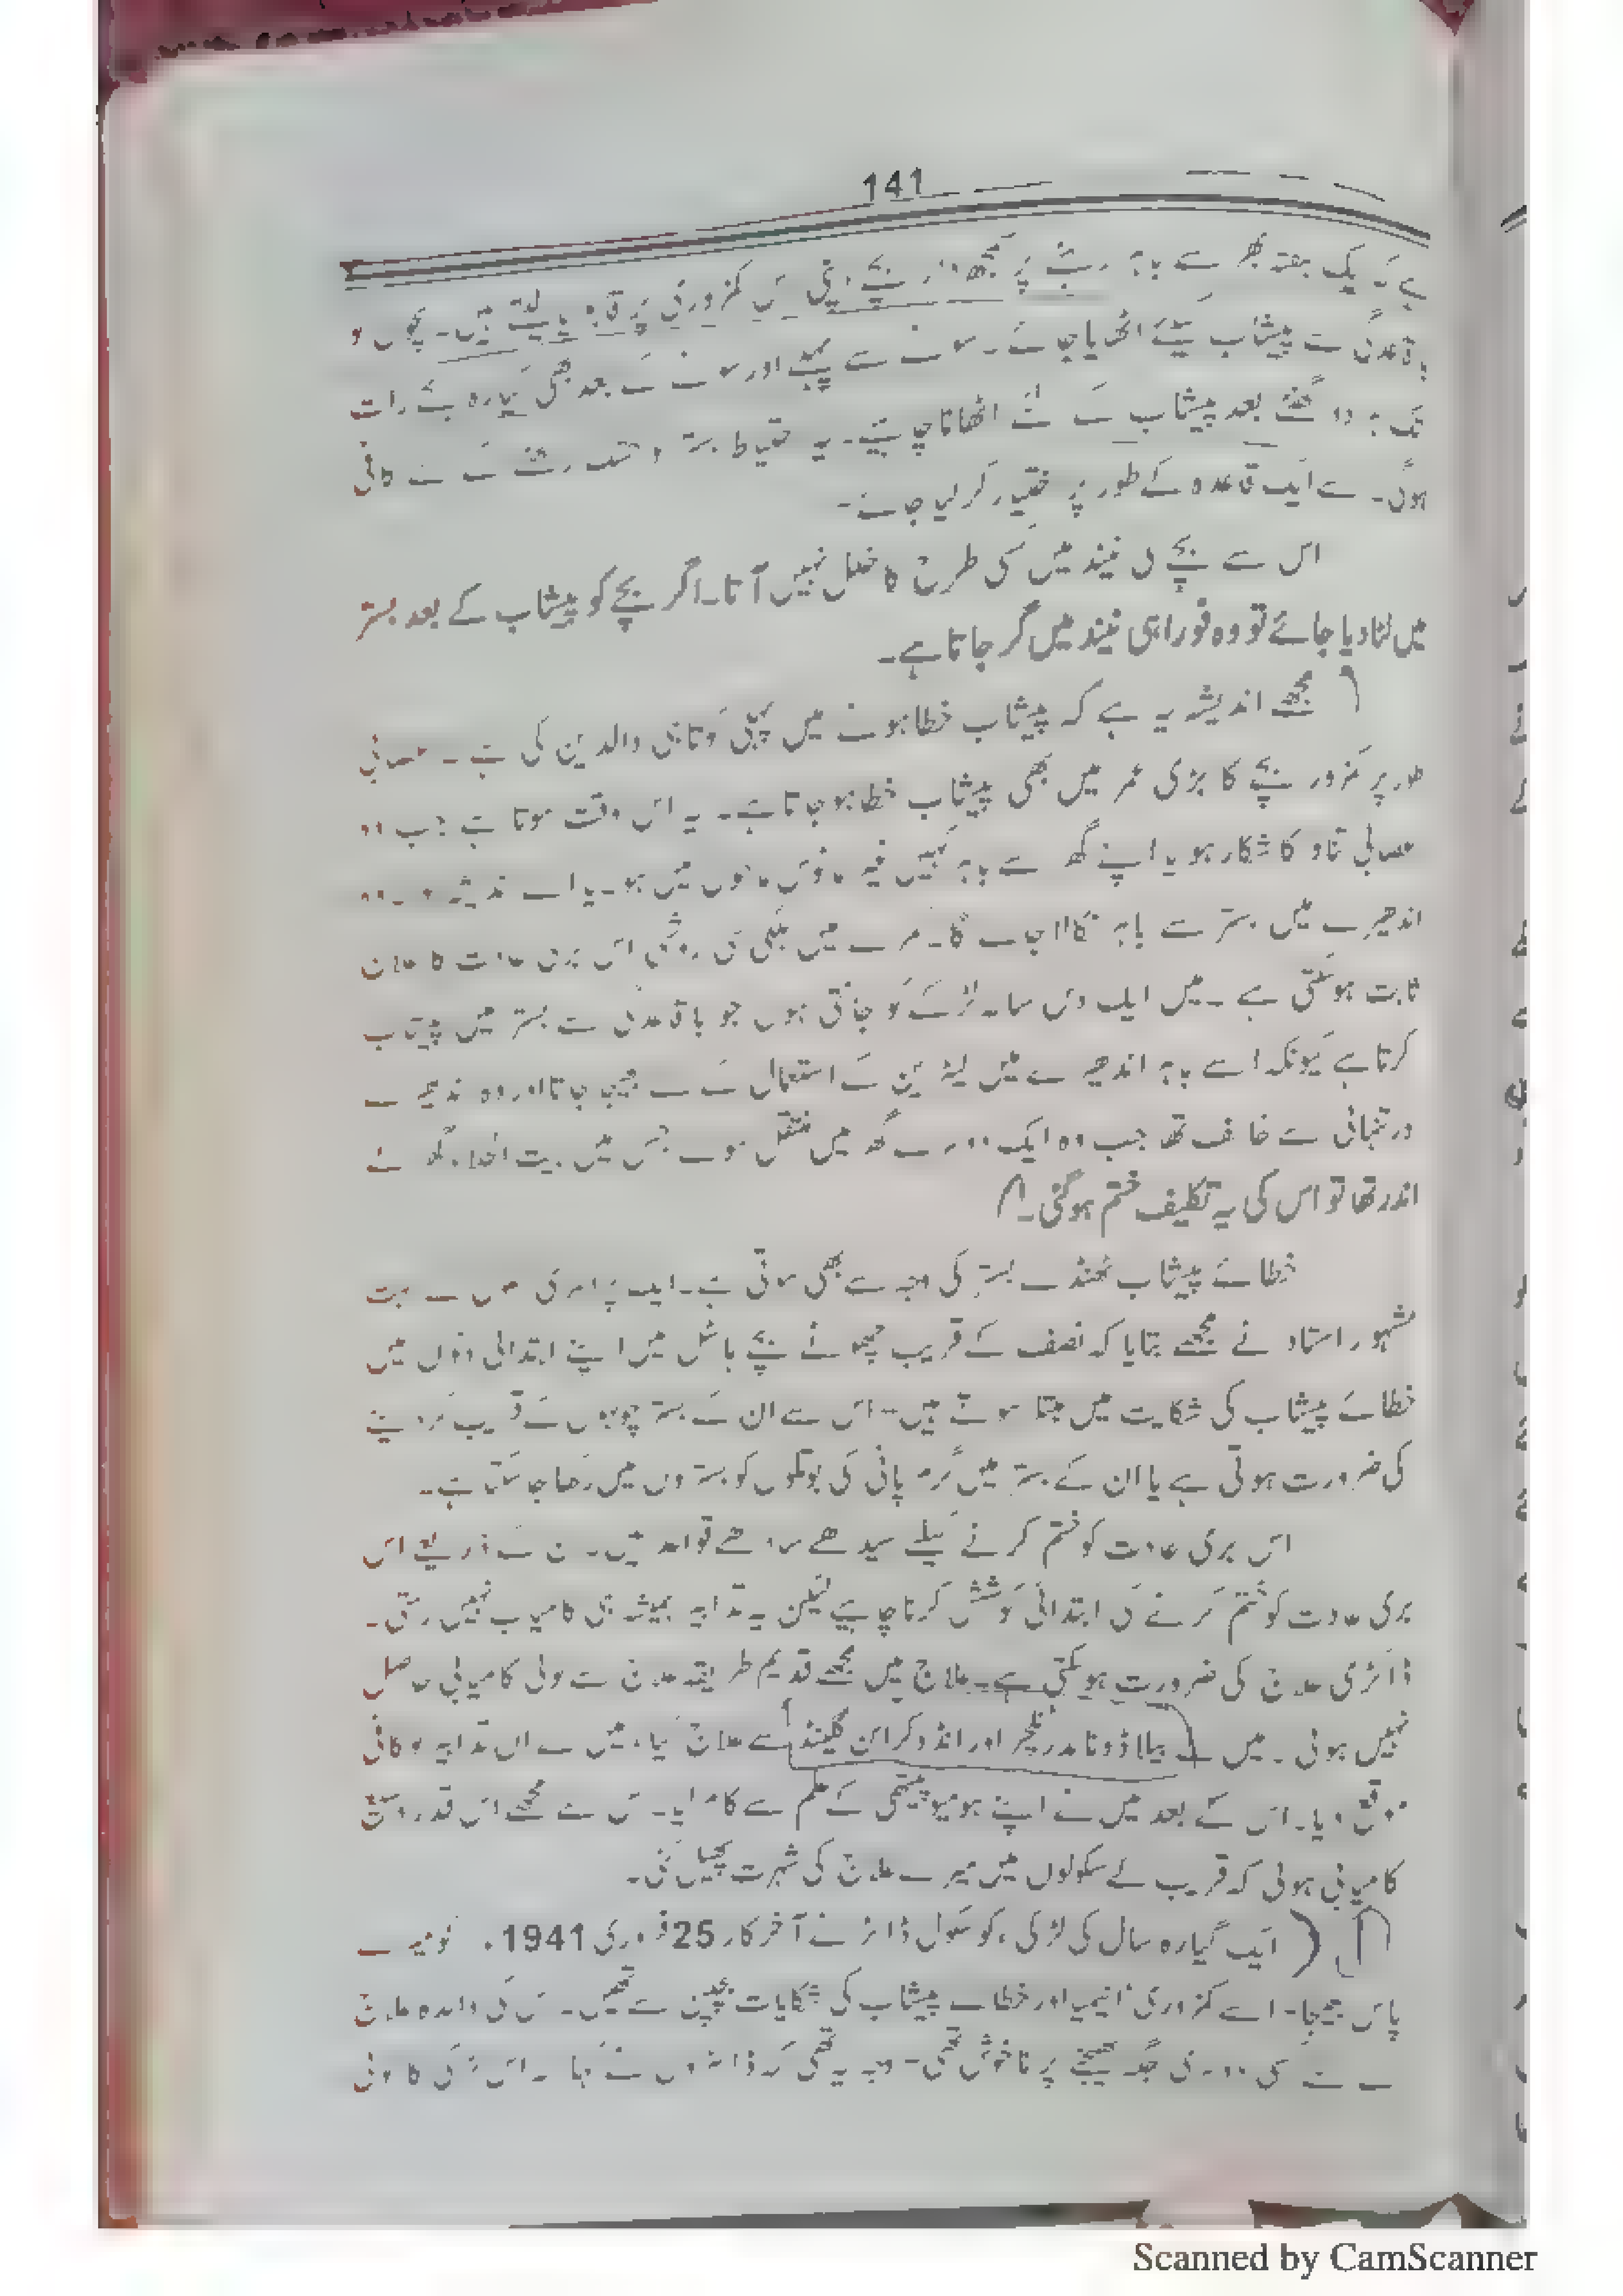 141
سے باہر رہنے پر سمجھدار بچے اپنی اس کمزوری پر قابو پا لیتے ہیں۔ بچوں کو
باقاعدگی سے پیشاب کیلئے اٹھایا جائے۔ سونے سے پہلے اور سونے کے بعد بھی گیارہ بجے رات
تک ہر دو گھنٹے بعد پیشاب کے لئے اٹھانا چاہیئے۔ یہ احتیاط بستر خشک رکھنے کے لئے کافی
ہوگی۔ اسے ایک قاعدہ کے طور پر اختیار کر لیا جائے۔
اس سے بچے کی نیند میں کسی طرح کا خلل نہیں آتا۔ اگر بچے کو پیشاب کے بعد بستر
میں لٹا دیا جائے تو وہ فورا ہی نیند میں گر جاتا ہے۔
مجھے اندیشہ یہ ہے کہ پیشاب خطا ہونے میں پہلی کوتاہی والدین کی ہے۔ عصبی
طور پر کمزور بچے کا بڑی عمر میں بھی پیشاب خطا ہو جاتا ہے۔ یہ اس وقت ہوتا ہے جب وہ
عصبی تناو کا شکار ہو یا اپنے گھر سے باہر کہیں غیر مانوس میں ہو۔ یا اسے اندیشہ ہو وہ
اندھیرے میں بستر سے باہر نکالا جائے گا۔ کمرے میں ہلکی سی روشنی اس بری عادت کا علاج
ثابت ہوسکتی ہے۔ میں ایک دس سالہ لڑکے کو جانتی ہوں جو باقاعدگی سے بستر میں پیشاب
کرتا ہے کیونکہ اسے باہر اندھیرے میں لیٹرین کے استعمال کے لئے بھیجا جاتا اور وہ اندھیرے
اور تنہائی سے خائف تھا جب وہ ایک دوسرے گھر میں منتقل ہوئے جس میں بیت الخلا گھر کے
اندر تھا تو اس کی یہ تکلیف ختم ہوگئی۔
خطائے پیشاب ٹھنڈے بستر کی وجہ سے بھی ہوتی ہے۔ ایک پرائمری سکول کے بہت
مشہور استاد نے مجھے بتایا کہ نصف کے قریب چھوٹے بچے ہاسٹل میں اپنے ابتدائی دنوں میں
خطائے پیشاب کی شکایت میں مبتلا ہوتے ہیں۔ اس سے ان کے بستر چولہوں کے قریب کر دینے
کی ضرورت ہوتی ہے یا ان کے بستر میں گرم پانی کی بوتلوں کو بستروں میں رکھا جا سکتا ہے۔
اس بری عادت کو ختم کرنے کیلئے سیدھے سادھے قواعد ہیں۔ ان کے ذریعے اس
بری عادت کو ختم کرنے کی ابتدائی کوشش کرنا چاہیے لیکن یہ تدابیر ہمیشہ ہی کامیاب نہیں رہتی۔
ڈاکٹری علاج کی ضرورت ہوسکتی ہے۔ علاج میں مجھے قدیم طریقہ علاج سے کوئی کامیابی حاصل
نہیں ہوئی۔ میں نے بیلا ڈونا مدر ٹنکچر اور انڈو کرائن گلینڈ سے علاج کیا، میں نے ان تدابیر کو کافی
موقع دیا۔ اس کے بعد میں نے اپنے ہومیوپیتھی کے علم سے کام لیا۔ اس سے مجھے اس قدر
کامیابی ہوئی کہ قریب کے سکولوں میں میرے علاج کی شہرت پھیل گئی۔
ایک گیارہ سال کی لڑکی، کو سکول ڈاکٹر نے آخر کار 25 فروری 1941، کو میرے
پاس بھیجا۔ اسے کمزوری انیمیا اور خطائے پیشاب کی شکایات بچپن سے تھیں۔ اس کی والدہ علاج
کے لئے کسی دوسری جگہ بھیجنے پر ناخوش تھی۔ وجہ یہ تھی کہ ڈاکٹروں نے کہا۔ اس لڑکی کا کوئی
Scanned by CamScanner